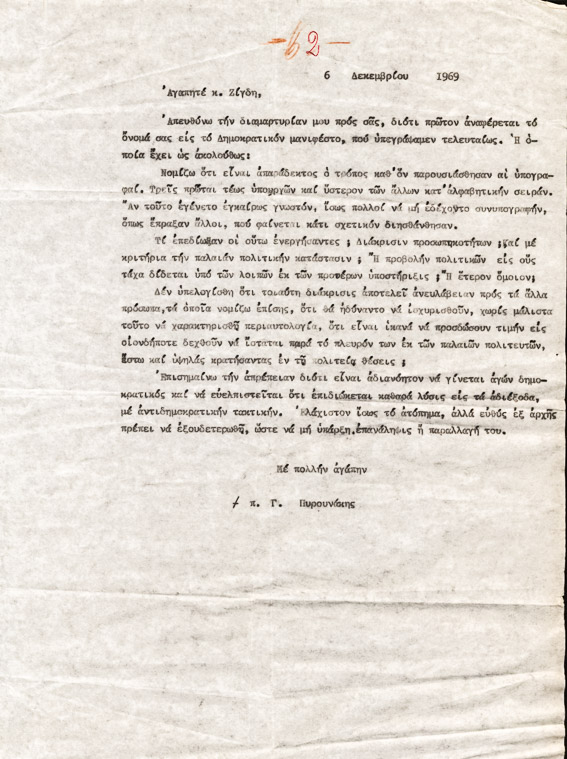 62
6 Δεκεμβρίου 1969
Ἀγαπητέ κ. Ζίγδη,
Ἀπευθύνω τήν διαμαρτυρίαν μου πρός σᾶς, διότι πρῶτον ἀναφέρεται τό
ὄνομά σας εἰς τό Δημοκρατικόν μανιφέστο, πού ὑπεγράψαμεν τελευταίως. Ἡ ὁ-
ποία ἔχει ὡς ἀκολούθως:
Νομίζω ὅτι εἶναι ἀπαράδεκτος ὁ τρόπος καθ' ὅν παρουσιάσθησαν αἱ ὑπογρα-
φαί. Τρεῖς πρῶται τέως ὑπουργῶν καί ὕστερον τῶν ἄλλων κατ' ἀλφαβητικήν σειράν.
Ἄν τοῦτο ἐγένετο ἐγκαίρως γνωστόν, ἴσως πολλοί νά μή ἐδέχοντο συνυπογραφήν,
ὅπως ἔπραξαν ἄλλοι, πού φαίνεται κάτι σχετικόν διησθάνθησαν.
Τί ἐπεδίωξαν οἱ οὕτω ἐνεργήσαντες ; Διάκρισιν προσωπικοτήτων ; καί μέ
κριτήρια τήν παλαιάν πολιτικήν κατάστασιν ; Ἤ προβολήν πολιτικῶν εἰς οὕς
τάχα δίδεται ὑπό τῶν λοιπῶν ἐκ τῶν προτέρων ὑποστήριξις ; Ἤ ἕτερον ὅμοιον;
Δέν ὑπελογίσθη ὅτι τοιαύτη διάκρισις ἀποτελεῖ ἀνευλάβειαν πρός τά ἄλλα
πρόσωπα, τά ὁποῖα νομίζω ἐπίσης, ὅτι θά ἠδύναντο νά ἰσχυρισθοῦν, χωρίς μάλιστα
τοῦτο νά χαρακτηρισθῇ περιαυτολογία, ὅτι εἶναι ἱκανά νά προσδώσουν τιμήν εἰς
οἱονδήποτε δεχθοῦν νά ἵσταται παρά τό πλευρόν των ἐκ τῶν παλαιῶν πολιτευτῶν,
ἔστω καί ὑψηλάς κρατήσαντας ἐν τῇ πολιτείᾳ θέσεις ;
Ἐπισημαίνω τήν ἀπρέπειαν διότι εἶναι ἀδιανόητον νά γίνεται ἀγών δημο-
κρατικός καί νά εὐελπιστεῖται ὅτι ἐπιδιώκεται καθαρά λύσις εἰς τά ἀδιέξοδα,
μέ ἀντιδημοκρατικήν τακτικήν. Ἐλάχιστον ἴσως τό ἀτόπημα, ἀλλά εὐθύς ἐξ ἀρχῆς
πρέπει νά ἐξουδετερωθῇ, ὥστε νά μή ὑπάρξῃ ἐπανάληψις ἤ παραλλαγή του.
Μέ πολλήν ἀγάπην
π. Γ. Πυρουνάκης